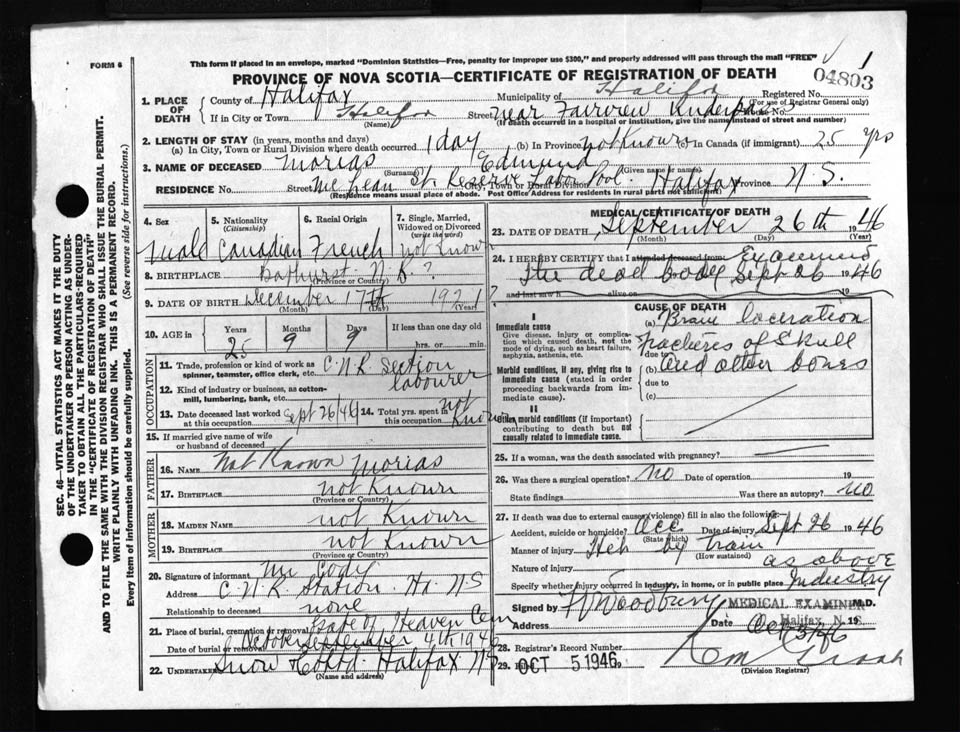 FORM 6
This form if placed in an envelope, marked "Dominion Statistics—Free, penalty for improper use $300," and properly addressed will pass through the mail "FREE"
1
PROVINCE OF NOVA SCOTIA—CERTIFICATE OF REGISTRATION OF DEATH
04803
1. PLACE OF DEATH
County of Halifax Municipality of Halifax Registered No.
(For use of Registrar General only)
If in City or Town Halifax Street near Fairview Underpass House No.
(Name) (If death occurred in a hospital or institution, give the name instead of street and number)
2. LENGTH OF STAY (in years, months and days)
(a) In City, Town or Rural Division where death occurred 1 day (b) In Province not Known (c) In Canada (if immigrant) 25 yrs
3. NAME OF DECEASED Morias Edmund
(Surname) (Given name or names)
RESIDENCE No. Street McLean St. Reserve Labor Pool City, Town or Rural Division Halifax Province N.S.
(Residence means usual place of abode. Post Office Address for residents in rural parts not sufficient)
4. Sex
5. Nationality (Citizenship)
6. Racial Origin
7. Single, Married, Widowed or Divorced (write the word)
Male Canadian French not Known
8. BIRTHPLACE Bathurst N.B. ?
(Province or Country)
9. DATE OF BIRTH December 17th 1921?
(Month) (Day) (Year)
10. AGE in Years Months Days If less than one day old
25 9 9 hrs. or min.
OCCUPATION
11. Trade, profession or kind of work as spinner, teamster, office clerk, etc. C.N.R. Section labourer
12. Kind of industry or business, as cotton-mill, lumbering, bank, etc.
13. Date deceased last worked at this occupation Sept 26/46
14. Total yrs. spent in this occupation not Known
15. If married give name of wife or husband of deceased
FATHER
16. NAME Not Known Morias
17. BIRTHPLACE not Known
(Province or Country)
MOTHER
18. MAIDEN NAME not Known
19. BIRTHPLACE not Known
(Province or Country)
20. Signature of informant Mr Cody
Address C.N.R. Station. Hx. N.S
Relationship to deceased none
21. Place of burial, cremation or removal Gate of Heaven Cem
Date of burial or removal October September 4th 1946
22. UNDERTAKER Snow & Co Ltd. Halifax N.S.
(Name and address)
MEDICAL CERTIFICATE OF DEATH
23. DATE OF DEATH September 26th 1946
(Month) (Day) (Year)
24. I HEREBY CERTIFY that I attended deceased from Examined
the dead body Sept 26 1946
and last saw h alive on 19
CAUSE OF DEATH
I
Immediate cause
Give disease, injury or complication which caused death, not the mode of dying, such as heart failure, asphyxia, asthenia, etc.
(a) Brain laceration
fractures of Skull
due to
Morbid conditions, if any, giving rise to immediate cause (stated in order proceeding backwards from immediate cause).
(b) and other bones
due to
(c)
II
Other morbid conditions (if important) contributing to death but not causally related to immediate cause.
25. If a woman, was the death associated with pregnancy?
26. Was there a surgical operation? no Date of operation 19
State findings Was there an autopsy? no
27. If death was due to external causes (violence) fill in also the following:
Accident, suicide or homicide? Acc Date of injury Sept 26 1946
(State which)
Manner of injury Hit by train
(How sustained)
Nature of injury as above
Specify whether injury occurred in industry, in home, or in public place Industry
Signed by Woodbury MEDICAL EXAMINER M.D.
Halifax, N. S.
Address Date Oct 3/46
28. Registrar's Record Number
29. OCT 5 1946
(Division Registrar)
SEC. 46—VITAL STATISTICS ACT MAKES IT THE DUTY
OF THE UNDERTAKER OR PERSON ACTING AS UNDERTAKER TO OBTAIN ALL THE PARTICULARS REQUIRED
IN THE "CERTIFICATE OF REGISTRATION OF DEATH"
AND TO FILE THE SAME WITH THE DIVISION REGISTRAR WHO SHALL ISSUE THE BURIAL PERMIT.
WRITE PLAINLY WITH UNFADING INK. THIS IS A PERMANENT RECORD.
Every item of information should be carefully supplied. (See reverse side for instructions.)